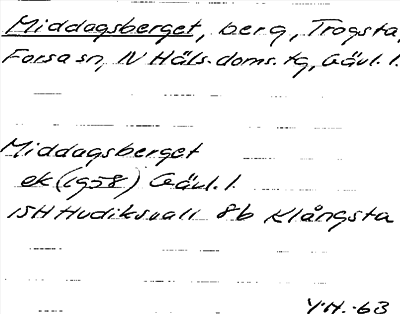 Middagsberget, berg, Trogsta,
Forsa sn, N Häls. doms. tg, Gävl. l.
Middagsberget
ek (1958) Gävl. l.
15H Hudiksvall 8b Klångsta
Y.H. -63